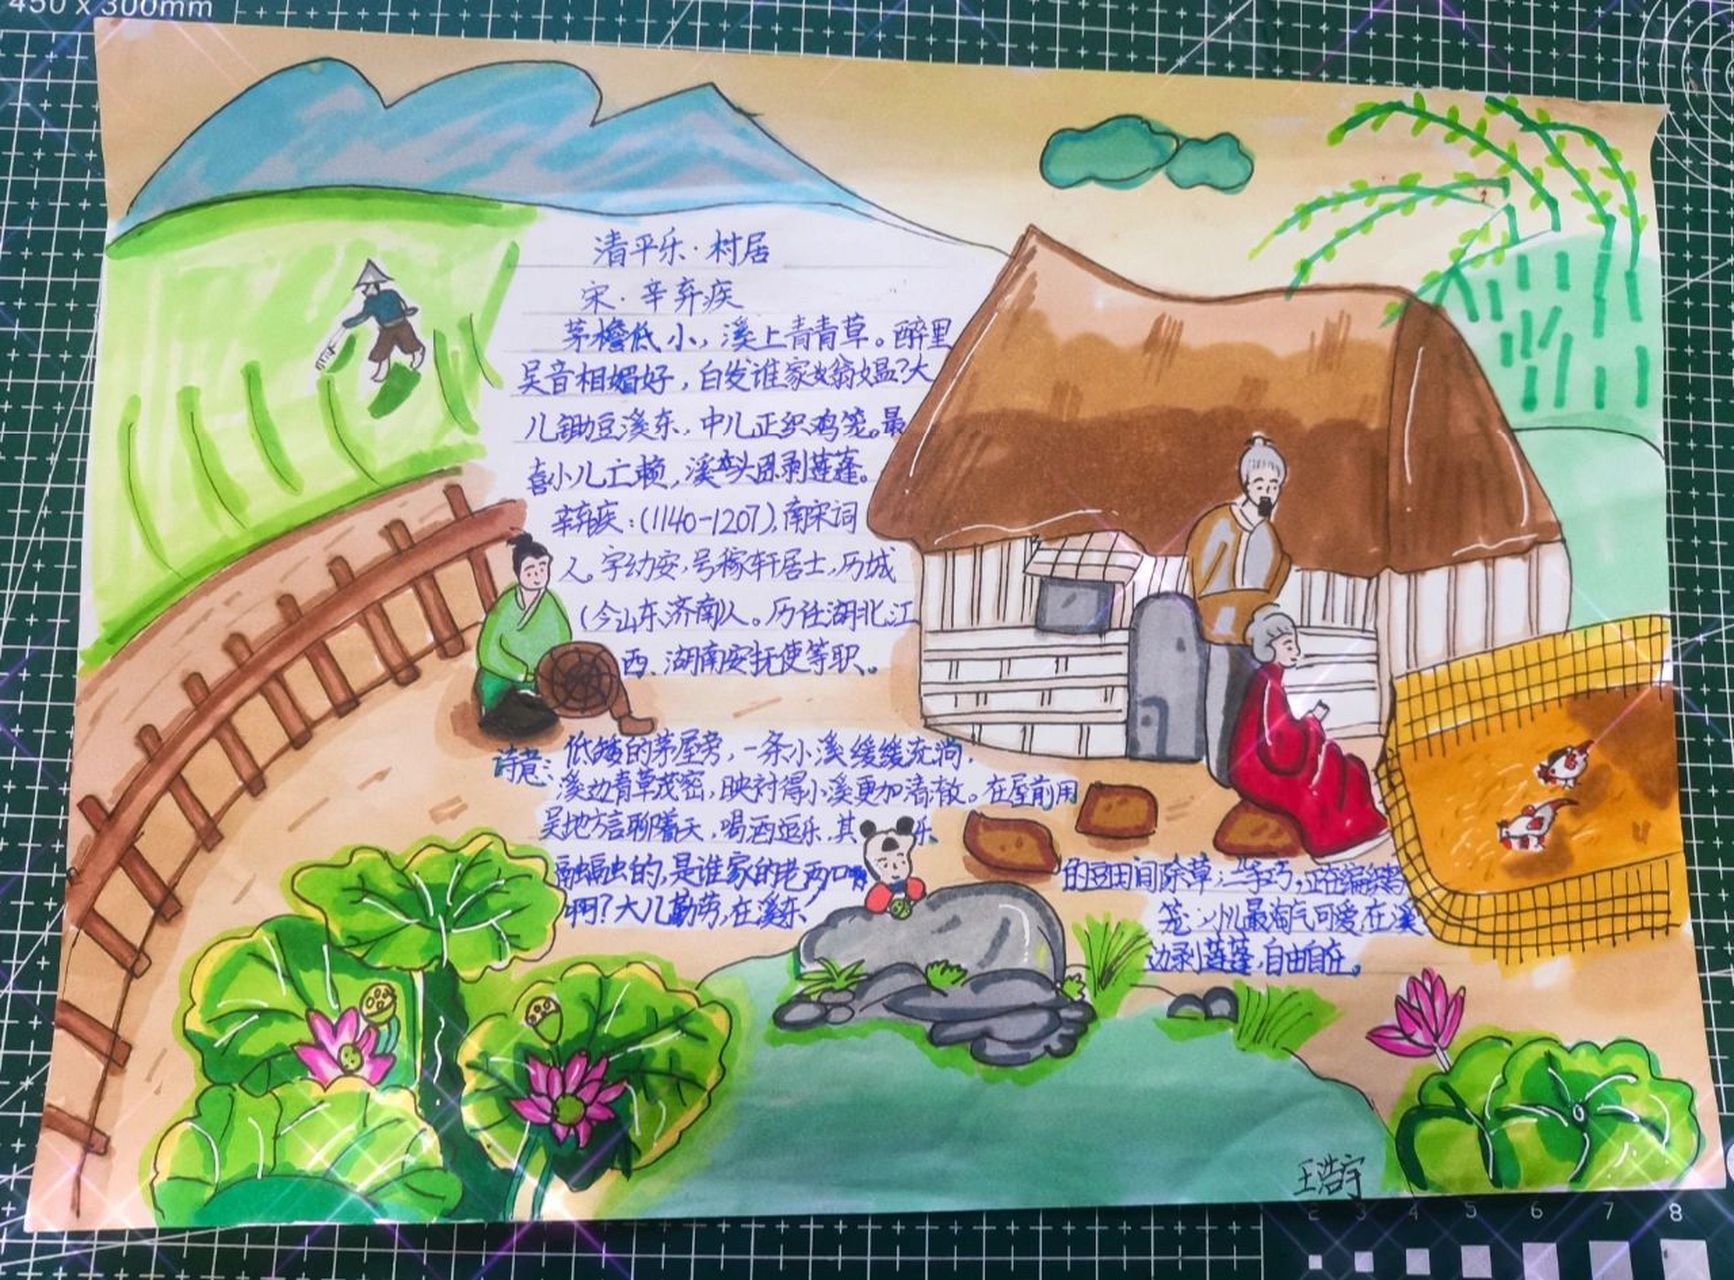 450 x 300mm
清平乐·村居
宋·辛弃疾
茅檐低小，溪上青青草。醉里
吴音相媚好，白发谁家翁媪？大
儿锄豆溪东，中儿正织鸡笼。最
喜小儿亡赖，溪头卧剥莲蓬。
辛弃疾：(1140-1207)，南宋词
人。字幼安，号稼轩居士，历城
(今山东济南人。历任湖北江
西、湖南安抚使等职。
诗意：低矮的茅屋旁，一条小溪缓缓流淌，
溪边青草茂密，映衬得小溪更加清澈。在屋前用
吴地方言聊着天，喝酒逗乐，其 乐
融融的，是谁家的老两口
啊？大儿勤劳，在溪东
的豆田间除草；二手巧，正在编织鸡
笼；小儿最淘气可爱，在溪
边剥莲蓬，自由自在。
王浩宇
2 3 4 5 6 7 8